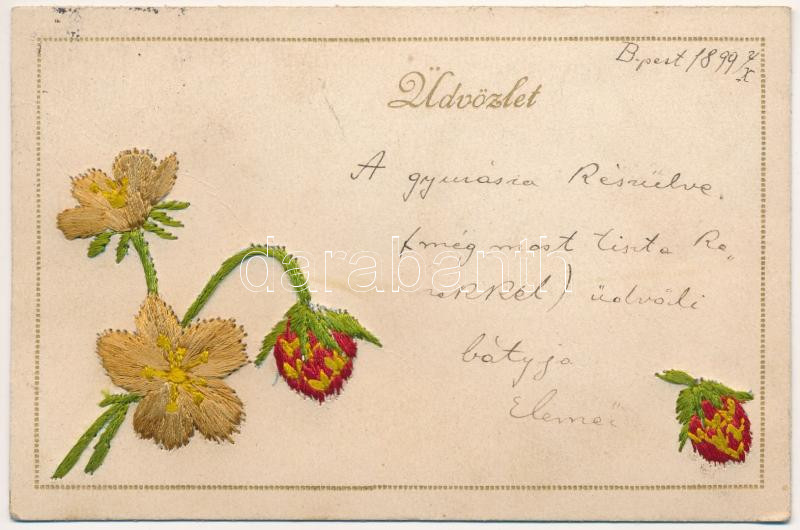 B.pest 1899 7/X
Üdvözlet
A gyurásra készülve.
(még most tiszta ke„
zekkel) üdvözli
bátyja
Elemér
darabanth.com